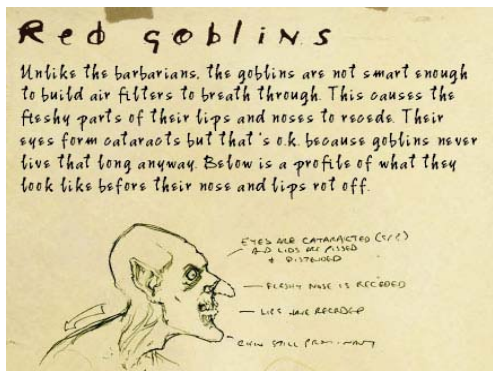 Red goblins
Unlike the barbarians, the goblins are not smart enough
to build air filters to breath through. This causes the
fleshy parts of their lips and noses to recede. Their
eyes form cataracts but that's o.k. because goblins never
live that long anyway. Below is a profile of what they
look like before their nose and lips rot off.
EYES ARE CATARACTED
LIDS ARE
DISTENDED
FLESHY NOSE IS RECEDED
LIPS HAVE RECEDED
CHIN STILL